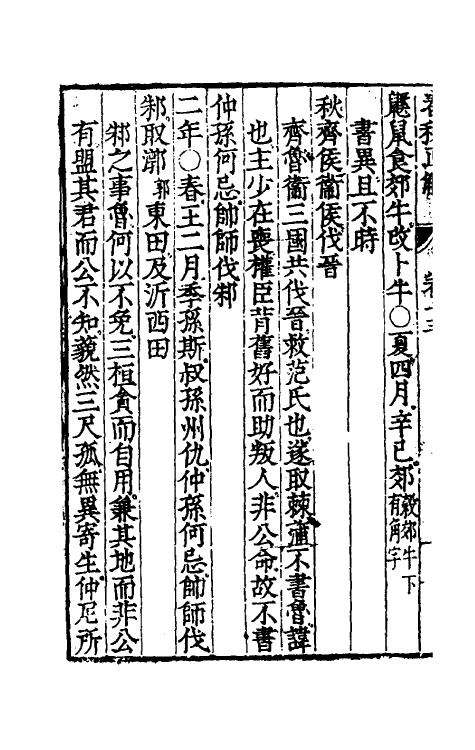 春秋
鼷鼠食郊牛改卜牛〇夏四月辛巳郊穀郊牛下有字
書異且不時
秋齊侯衞侯伐晉
齊魯衞三國共伐晉救范氏也遂取棘蒲不書魯諱
也主少在喪權臣背舊好而助叛人非公命故不書
仲孫何忌帥師伐邾
二年〇春王二月季孫斯叔孫州仇仲孫何忌帥師伐
邾取漷郭東田及沂西田
邾之事魯何以不免三桓貪而自用兼其地而非公
有盟其君而公不知藐然三尺孤無異寄生仲尼所